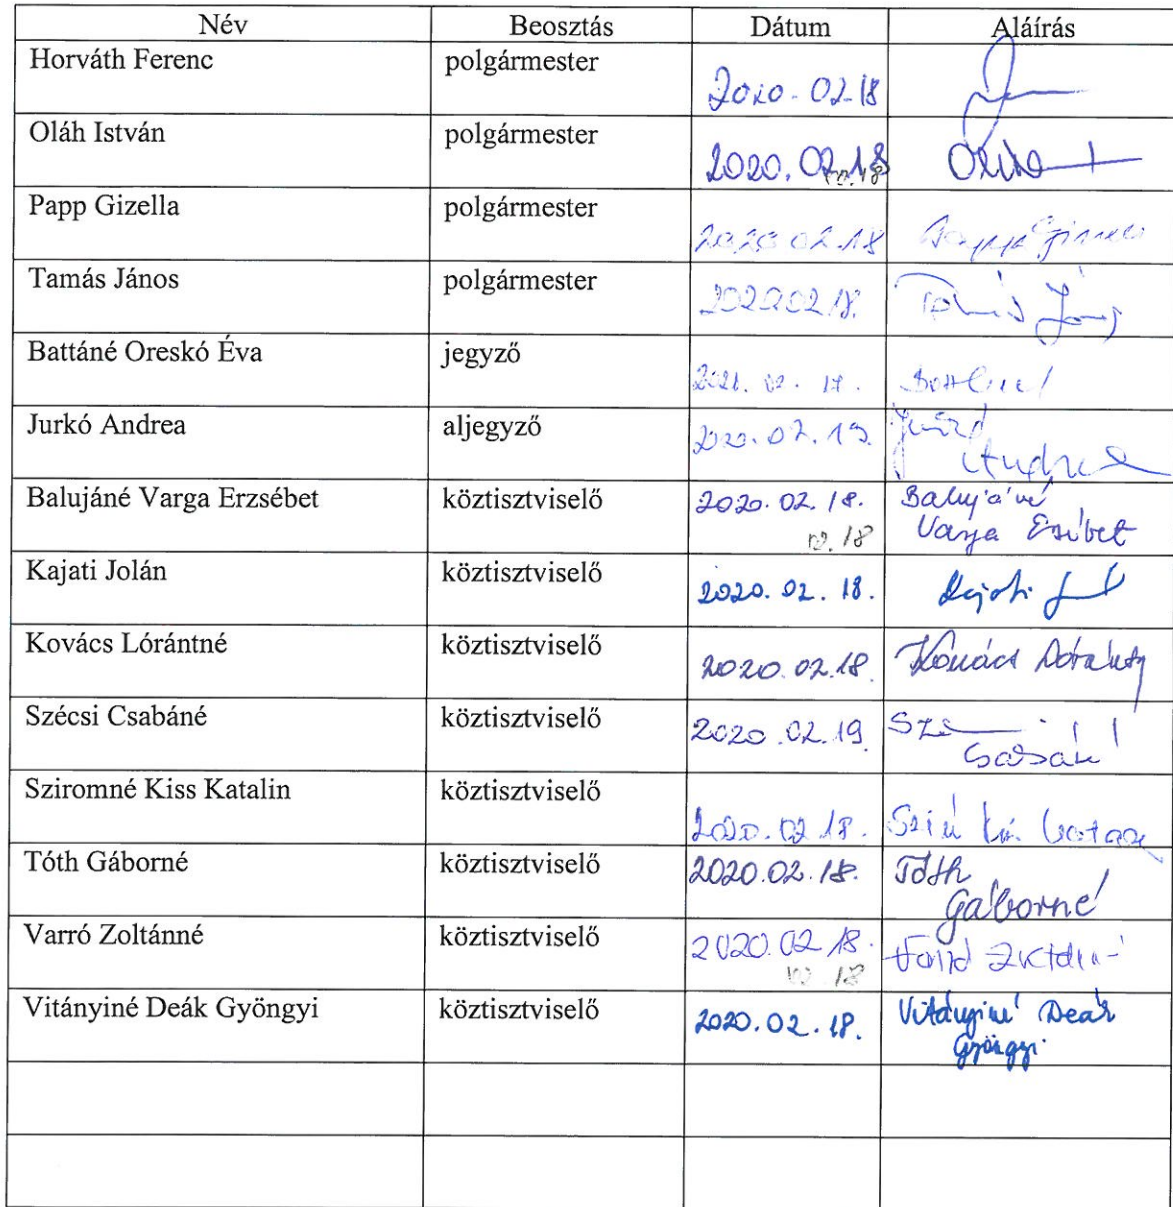 Név Beosztás Dátum Aláírás
Horváth Ferenc polgármester 2020-02-18
Oláh István polgármester 2020.02.18
02.18
Papp Gizella polgármester 2020 02.18
Tamás János polgármester 2020.02.18. Tamás János
Battáné Oreskó Éva jegyző
Jurkó Andrea aljegyző 2020.02.19. Jurkó
Andrea
Balujáné Varga Erzsébet köztisztviselő 2020.02.18. Balujáné
02.18 Varga Erzsébet
Kajati Jolán köztisztviselő 2020.02.18. Kajati
Kovács Lórántné köztisztviselő 2020.02.18. Kovács Lórántné
Szécsi Csabáné köztisztviselő 2020.02.19.
Csabáné
Sziromné Kiss Katalin köztisztviselő 2020.02.18.
Tóth Gáborné köztisztviselő 2020.02.18. Tóth
Gáborné
Varró Zoltánné köztisztviselő 2020.02.18. Varró Zoltánné
02.18
Vitányiné Deák Gyöngyi köztisztviselő 2020.02.18. Vitányiné Deák
Gyöngyi